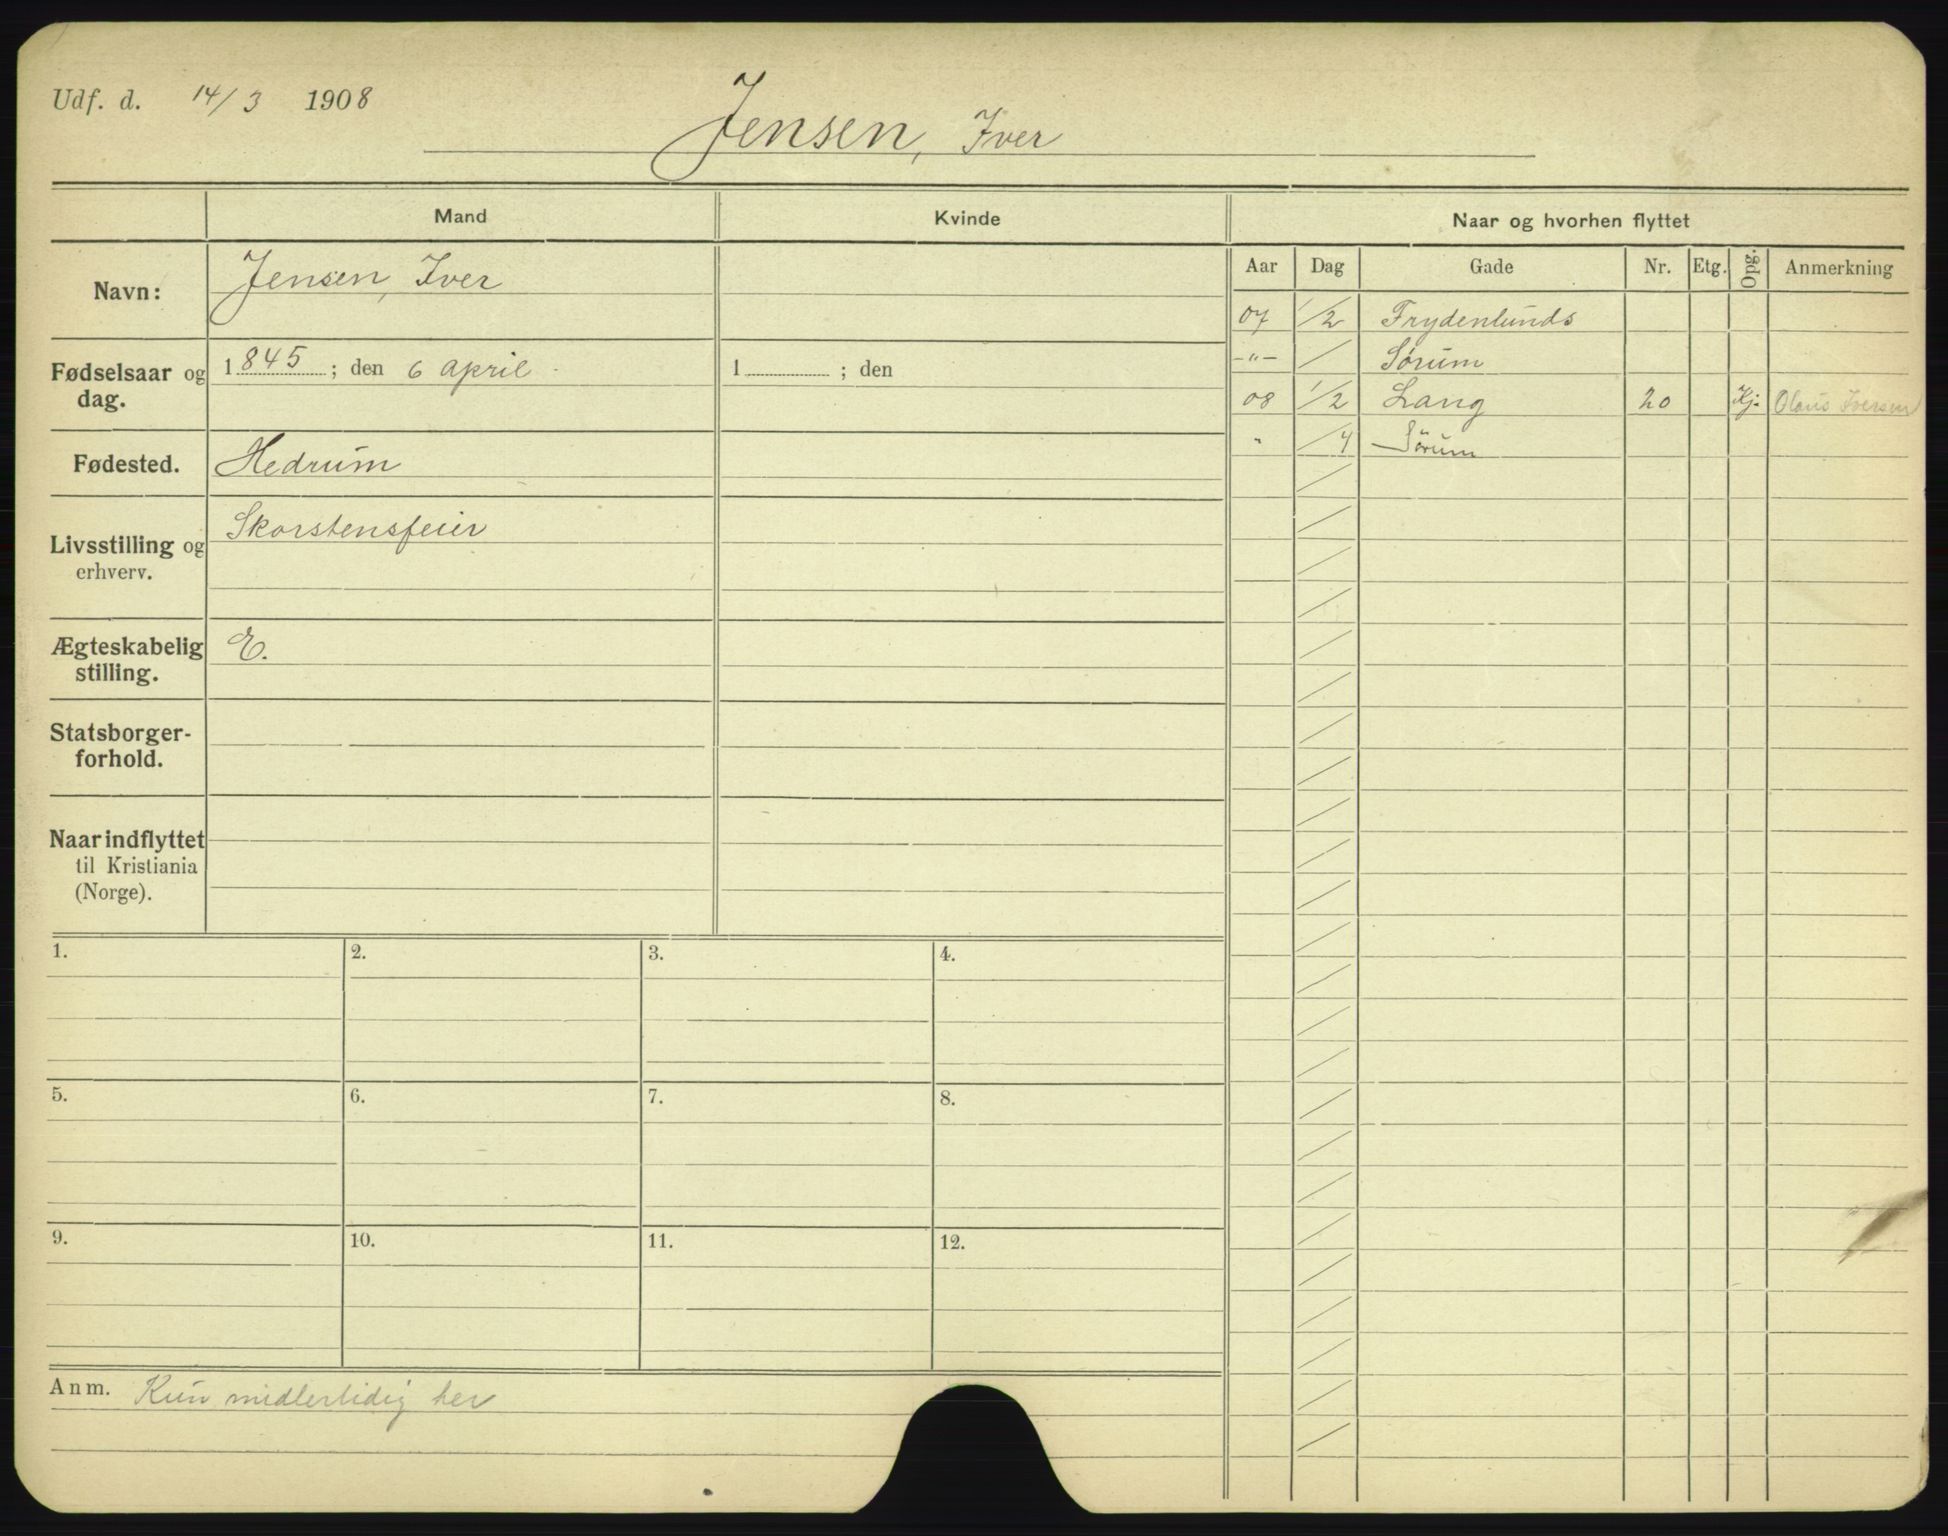 Udf. d. 14/3 1908
Jensen, Iver
Mand Kvinde Naar og hvorhen flyttet
Aar Dag Gade Nr. Etg. Opg. Anmerkning
Navn: Jensen, Iver
Fødselsaar og dag. 1845; den 6 april 1 ; den
Fødested. Hedrum
Livsstilling og erhverv. Skorstensfeier
Ægteskabelig stilling. E.
Statsborger-
forhold.
Naar indflyttet
til Kristiania
(Norge).
07 1/2 Frydenlunds
-"- / Sørum
08 1/2 Lang 20 Kj. Olaus Iversen
" /4 Sörum
1. 2. 3. 4.
5. 6. 7. 8.
9. 10. 11. 12.
Anm. Kun midlertidig her